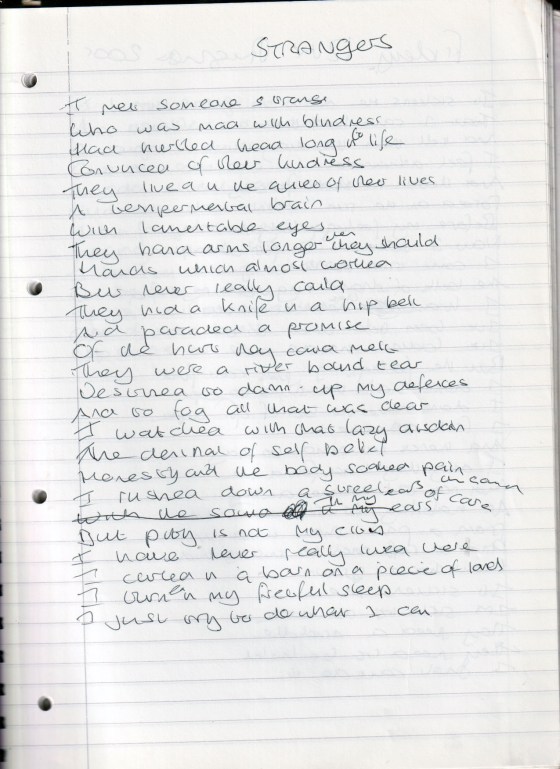 STRANGERS
I met someone strange
Who was mad with blindness
Had hurtled head long to life
Convinced of their kindness
They lived in the of their lives
A tempermental brain
With lamentable eyes
They hand arms longer then they should
Hands which almost worked
But never really could
They hid a knife in a hip belt
And paraded a promise
Of the hurt they could melt
They were a river bound tear
Destined to damn up my defences
And to fog all that was clear
I watched with that lazy disdain
The denial of self belief
Honesty and the body soaked pain
I rushed down a street
With the same in my ears of care
But pity is not my
I have never really lived there
I in a barn on a piece of land
I own in my fretful sleep
I just try to do what I can